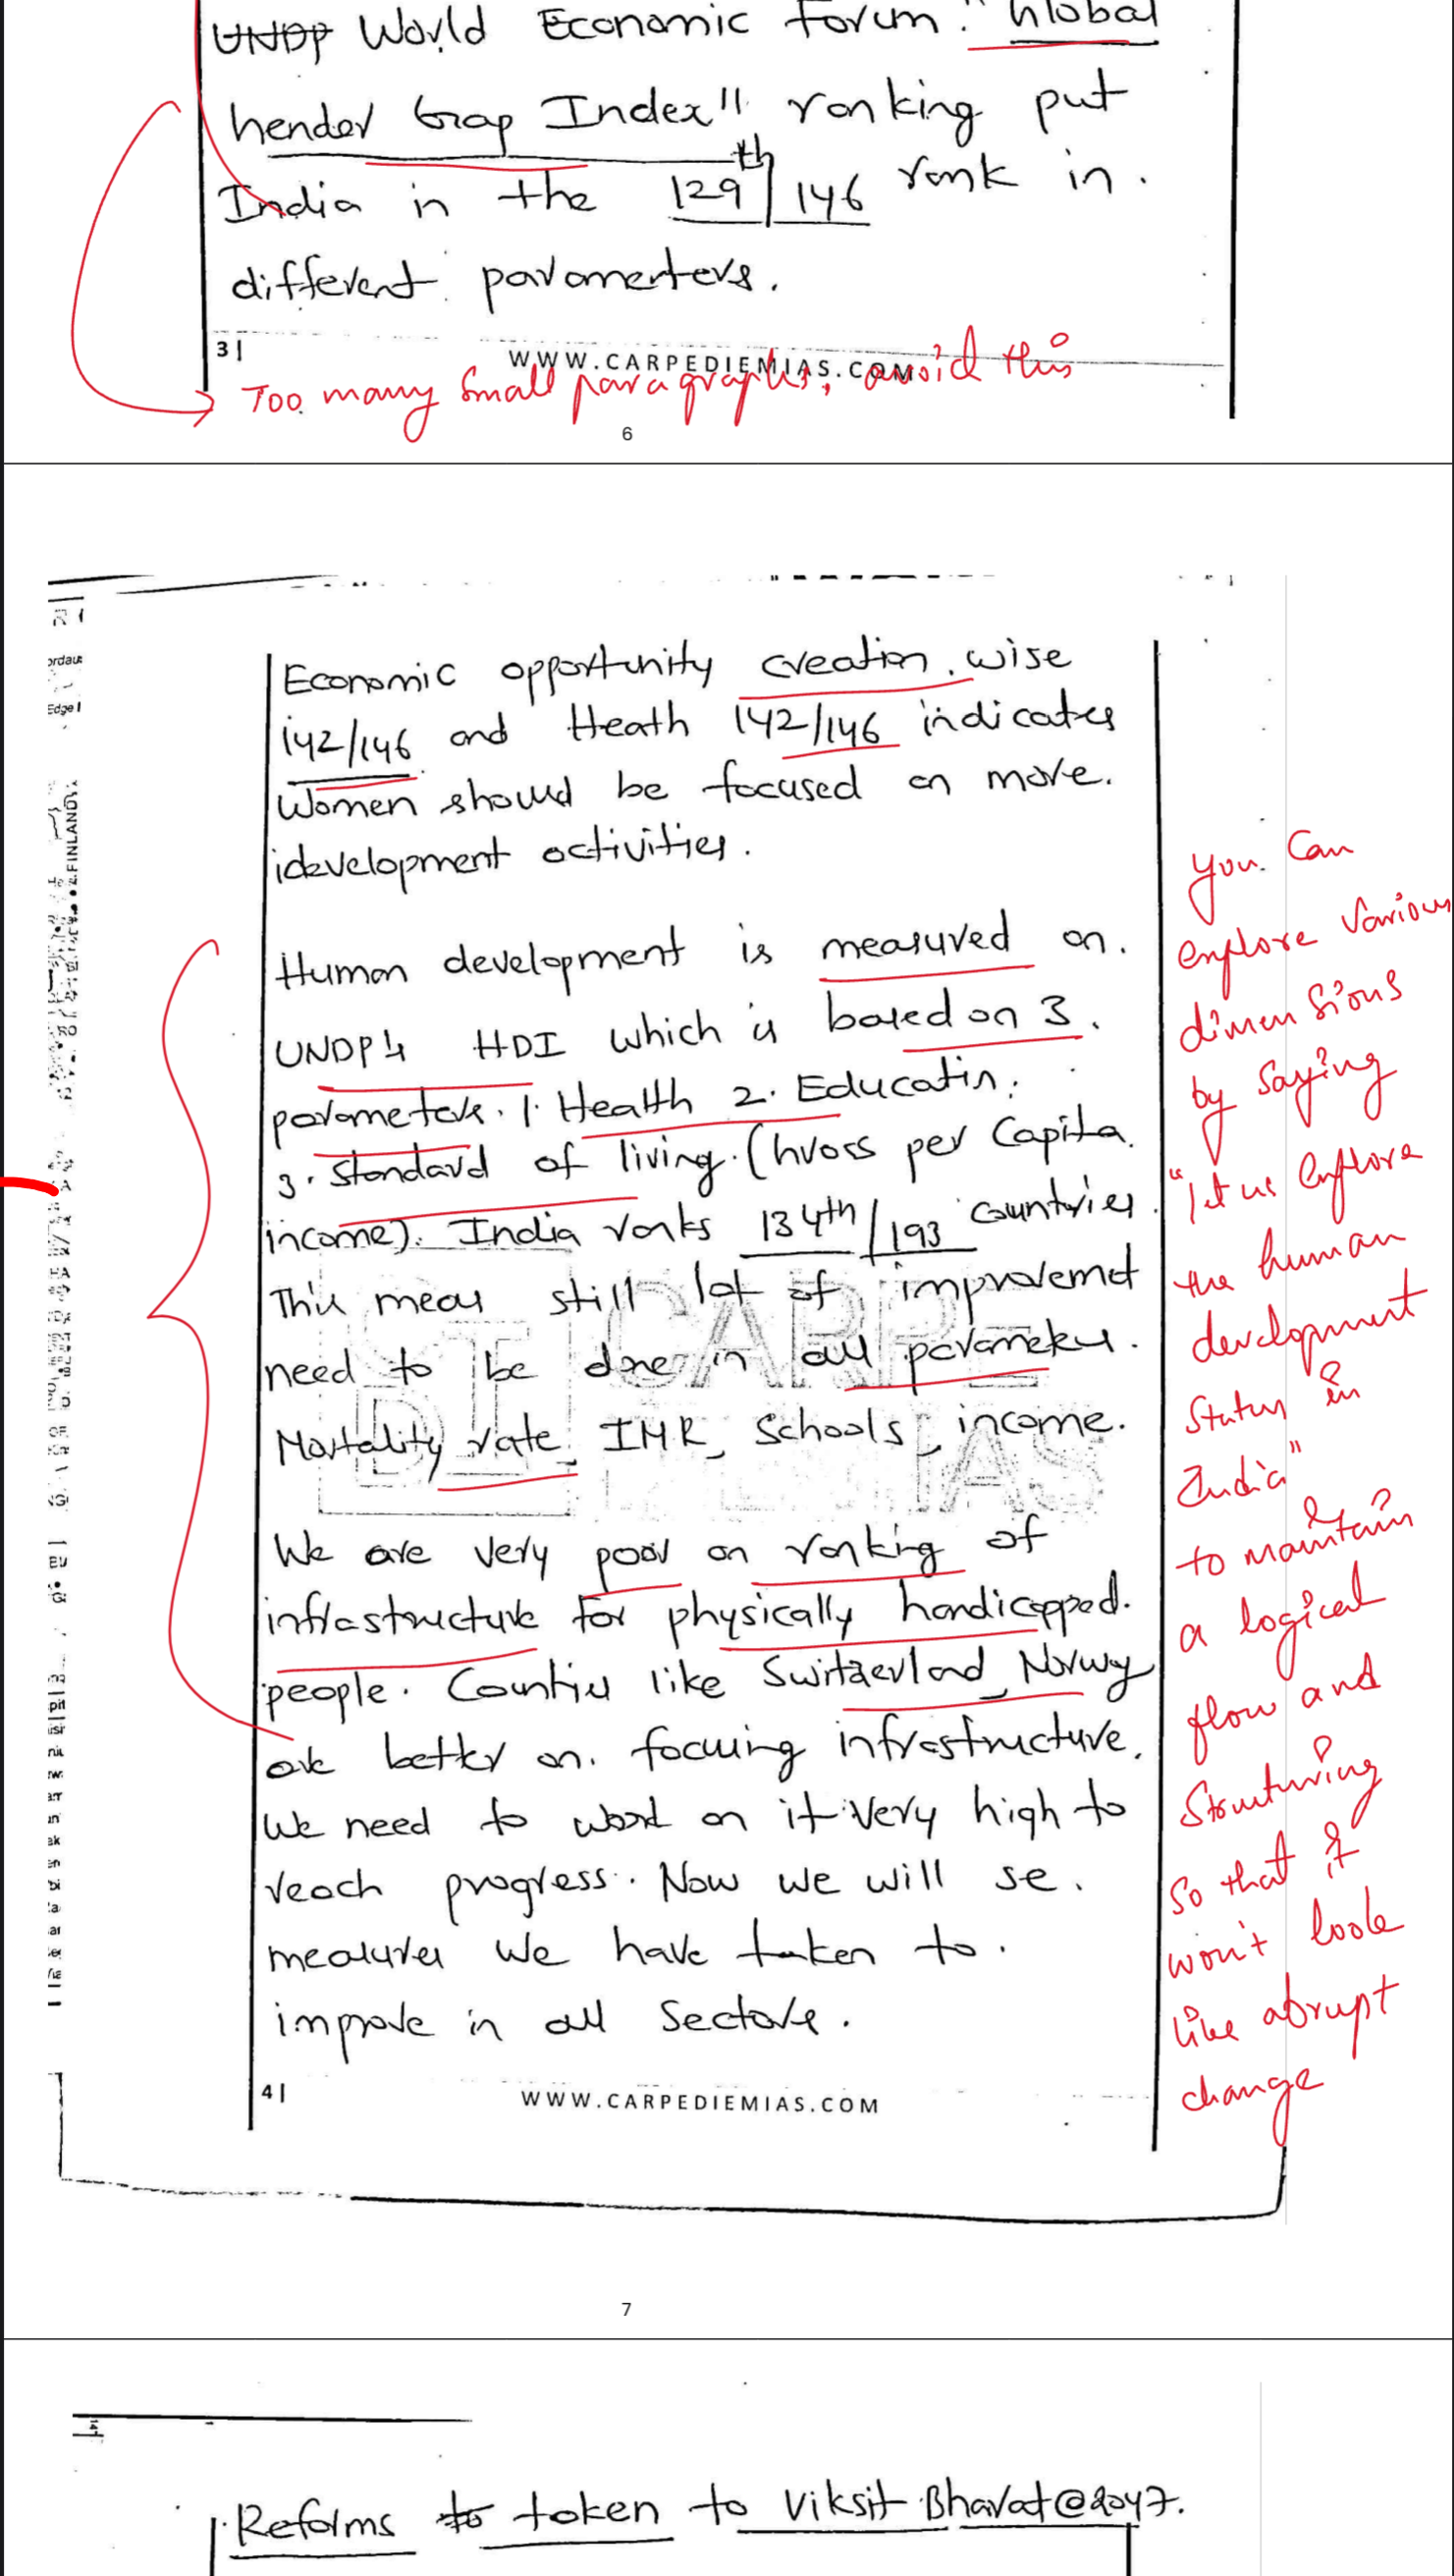 UNDP World Economic Forum. "Global
Gender Gap Index" ranking put
India in the 129th/146 rank in.
different paramerters.
3|
WWW.CARPEDIEMIAS.COM
Too many small paragraphs, avoid this
6
Economic opportunity creation. wise
142/146 and Heath 142/146 indicates
Women should be focused on more.
development activities.
Human development is measured on.
UNDP's HDI which is based on 3.
parameters. 1. Health 2. Educatin.
3. Standard of living. (Gross per Capita.
income). India ranks 134th/193 countries.
This means still lot of improvemet
need to be done in all parameters.
Mortality rate, IMR, Schools, income.
We are very poor on ranking of
infrastructure for physically handicapped.
people. Countries like Switzerland, Norwy
are better on. focusing infrastructure.
We need to work on it very high to
reach progress. Now we will se.
measures we have taken to.
improve in all Sectors.
you can
explore various
dimensions
by saying
"let us explore
the human
development
status in
India"
to maintain
a logical
flow and
structuring
so that it
won't look
like abrupt
change
4|
WWW.CARPEDIEMIAS.COM
7
Reforms to token to Viksit Bharat@2047.